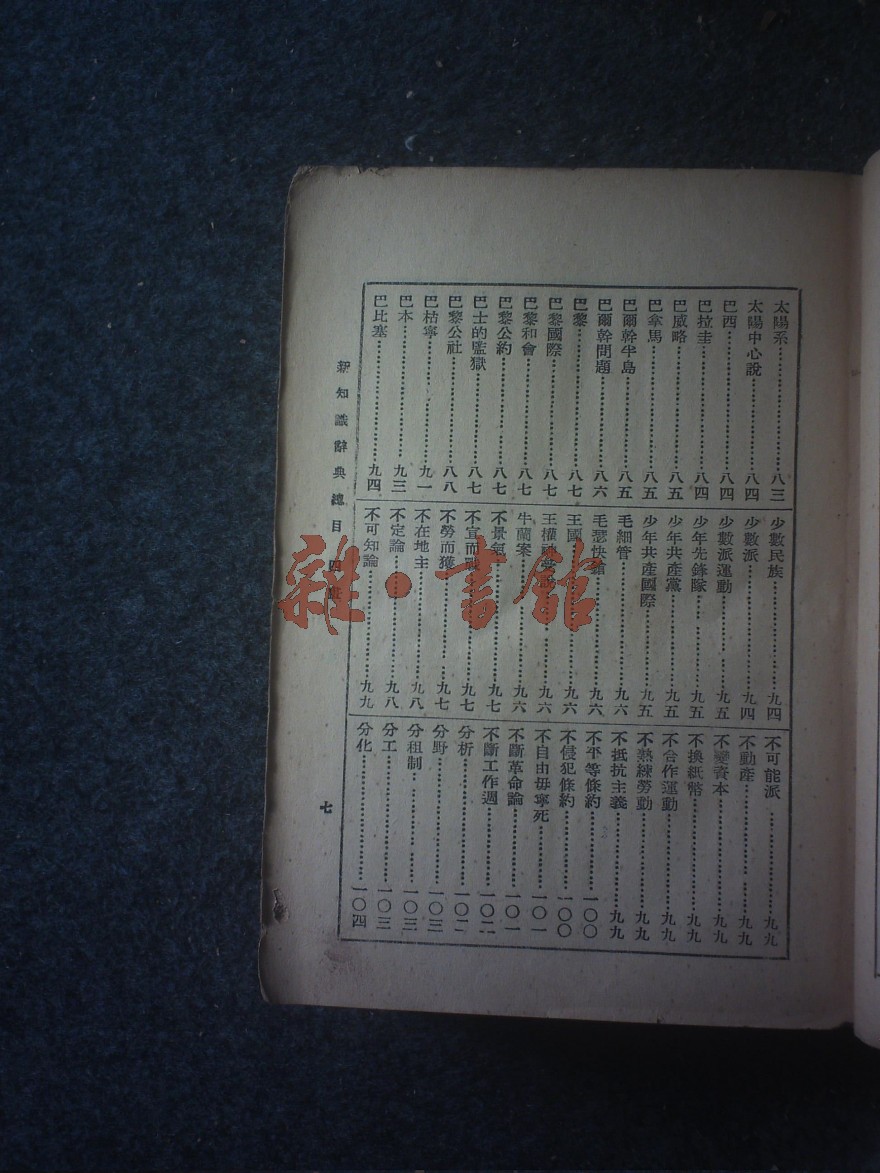 太陽系……八三
太陽中心說……八四
巴西……八四
巴拉圭……八四
巴威略……八五
巴拿馬……八五
巴爾幹半島……八五
巴爾幹問題……八六
巴黎……八七
巴黎國際……八七
巴黎和會……八七
巴黎公約……八七
巴士的監獄……八七
巴黎公社……八八
巴枯寧……九一
巴本……九三
巴比塞……九四
少數民族……九四
少數派……九四
少數派運動……九五
少年先鋒隊……九五
少年共產黨……九五
少年共產國際……九五
毛細管……九六
毛瑟快鎗……九六
王國……九六
王權……九六
牛蘭案……九六
不景氣……九七
不宣而戰……九七
不勞而獲……九七
不在地主……九八
不定論……九八
不可知論……九九
不可能派……九九
不動產……九九
不變資本……九九
不換紙幣……九九
不合作運動……九九
不熟練勞動……九九
不抵抗主義……九九
不平等條約……一〇〇
不侵犯條約……一〇〇
不自由毋寧死……一〇一
不斷革命論……一〇一
不斷工作週……一〇二
分析……一〇二
分野……一〇三
分租制……一〇三
分工……一〇三
分化……一〇四
新知識辭典總目 四畫
七
雜·書館